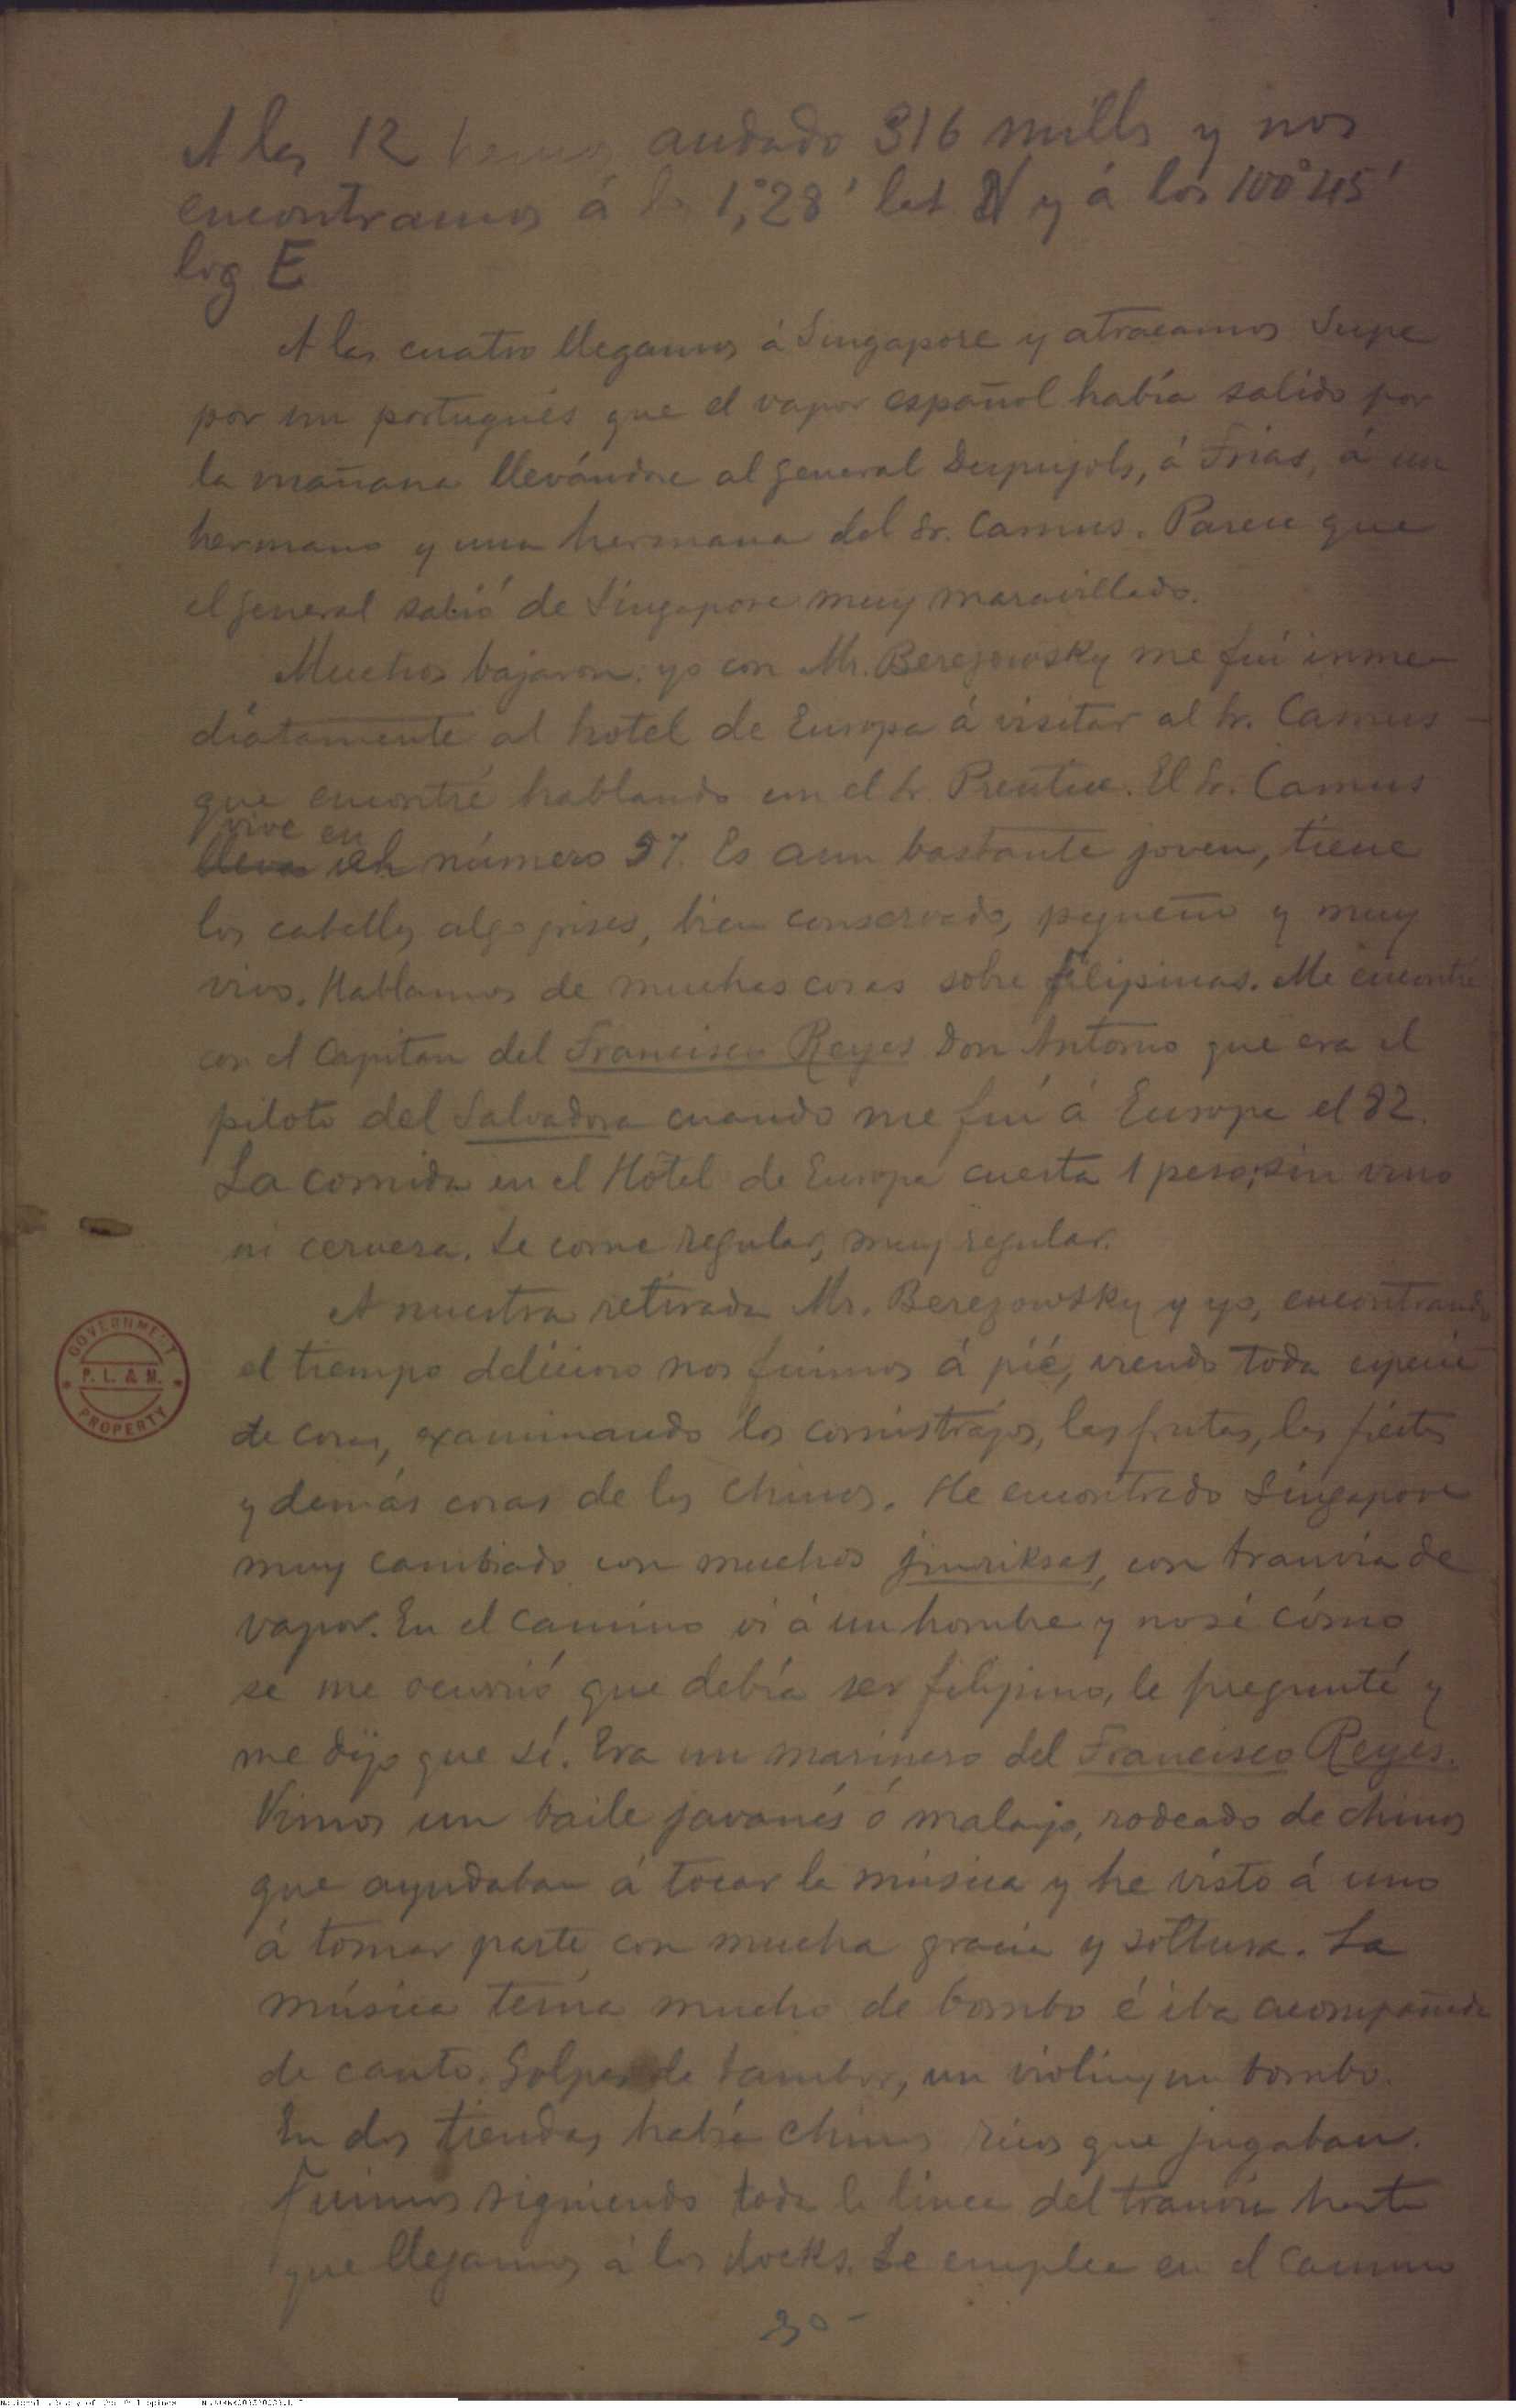 A las 12 hemos andado 316 mills y nos
encontramos á los 1,°28' lat N y á los 100°45'
log E
A las cuatro llegamos á Singapore y atracamos Supe
por un portugués que el vapor español había salido por
la mañana llevándose al general Despujols, á Frias, á un
hermano y una hermana del Sr. Camus. Parece que
el general salió de Singapore muy maravillado.
Muchos bajaron. yo con Mr. Berezowsky me fuí inme-
diatamente al hotel de Europa á visitar al Sr. Camus
que encontré hablando con el Sr. Prentice. El Sr. Camus
vive en
número 37. Es aun bastante joven, tiene
los cabellos algo grises, bien conservado, pequeño y muy
vivo. Hablamos de muchas cosas sobre Filipinas. Me encontré
con el Capitan del Francisco Reyes Don Antonio que era el
piloto del Salvadora cuando me fuí á Europa el 82.
La comida en el Hôtel de Europa cuesta 1 peso; sin vino
ni cerveza. Se come regular, muy regular.
A nuestra retirada Mr. Berezowsky y yo, encontrando
el tiempo delicioso nos fuimos á pié, viendo toda especie
de cosas, examinando los comistrajos, las frutas, las fiestas
y demás cosas de los chinos. He encontrado Singapore
muy cambiado con muchos jinriksas, con tranvia de
vapor. En el camino ví á un hombre y no sé cómo
se me ocurrió que debía ser filipino, le pregunté y
me dijo que sí. Era un marinero del Francisco Reyes.
Vimos un baile javanés ó malayo, rodeado de chinos
que ayudaban á tocar la música y he visto á uno
á tomar parte con mucha gracia y soltura. La
música tenía mucho de bombo é iba acompañada
de canto. Golpes de tambor, un violin y un bombo.
En dos tiendas había chinos ricos que jugaban.
Fuimos siguiendo toda la linea del tranvia hasta
que llegamos á los docks. Se emplea en el camino
30-
GOVERNMENT
P. L. & M.
PROPERTY
National Library of the Philippines